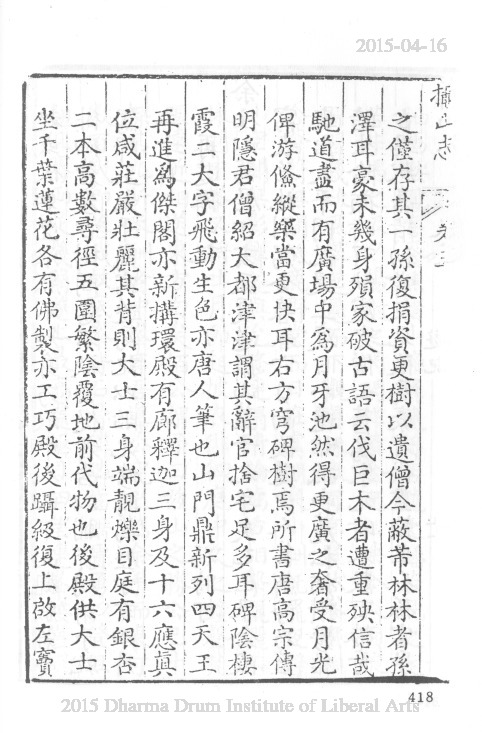 2015-04-16
攝山志
卷三
之僅存其一孫復捐資更樹以遺僧今蔽芾林林者孫
澤耳豪未幾身殞家破古語云伐巨木者遭重殃信哉
馳道盡而有廣場中為月牙池然得更廣之奢受月光
俾游鯈縱樂當更快耳右方穹碑樹焉所書唐高宗傳
明隱君僧紹大都津津謂其辭官捨宅足多耳碑陰棲
霞二大字飛動生色亦唐人筆也山門鼎新列四天王
再進為傑閣亦新搆環殿有廊釋迦三身及十六應眞
位咸莊嚴壯麗其背則大士三身端靚爍目庭有銀杏
二本高數尋徑五圍繁陰覆地前代物也後殿供大士
坐千葉蓮花各有佛製亦工巧殿後躡級復上啟左竇
418
2015 Dharma Drum Institute of Liberal Arts